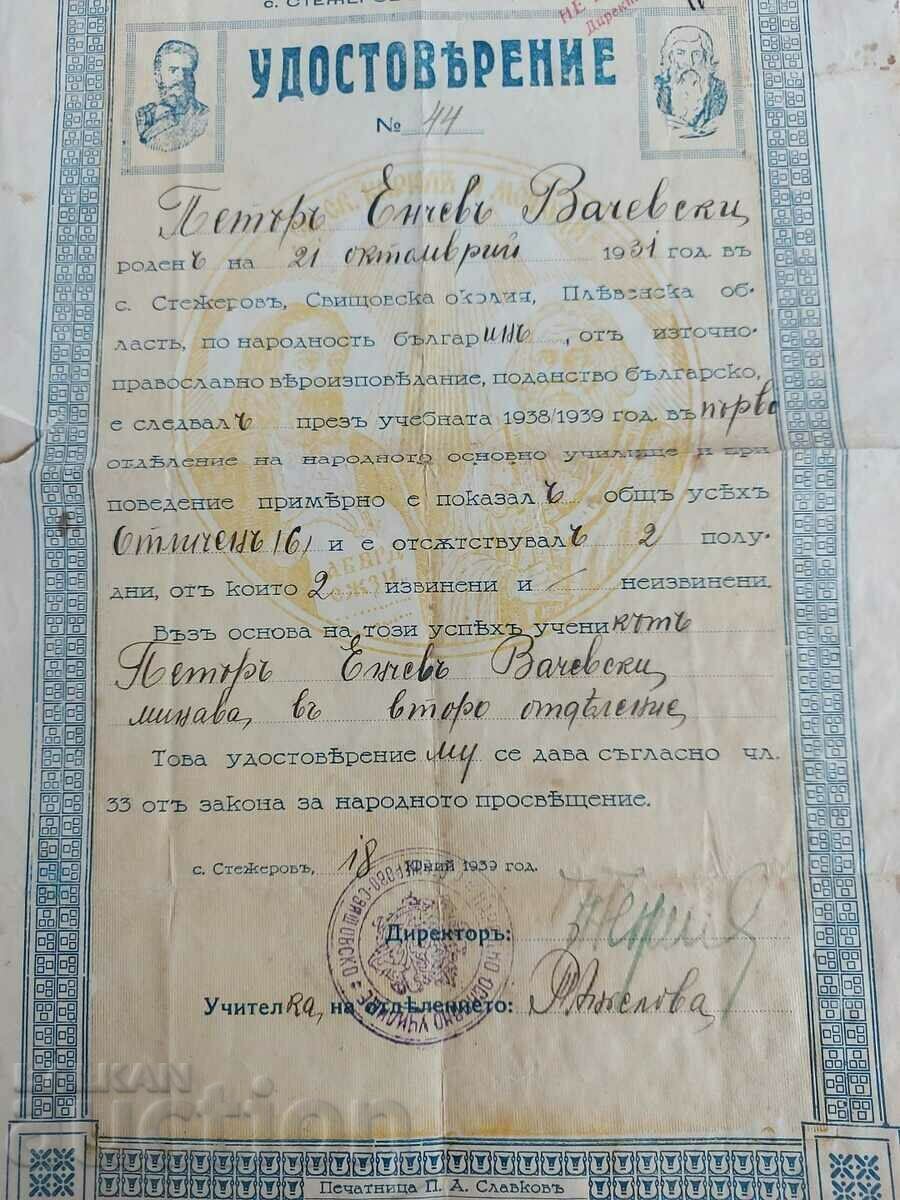 с. СТЕЖЕРОВ
Дирек
УДОСТОВѢРЕНИЕ
№ 44
Петъръ Енчевъ Вачевски
роденъ на 21 октомврий 1931 год. въ
с. Стежеровъ, Свищовска околия, Плѣвенска об-
ласть, по народность българинъ, отъ източно-
православно вѣроизповѣдание, поданство българско,
е следвалъ презъ учебната 1938/1939 год. въ първо
отдѣление на народното основно училище и при
поведение примѣрно е показалъ общъ успѣхъ
Отличенъ (6) и е отсѫтствувалъ 2 полу-
дни, отъ които 2 извинени и — неизвинени.
Възъ основа на този успѣхъ ученикътъ
Петъръ Енчевъ Вачевски
минава въ второ отдѣление
Това удостовѣрение му се дава съгласно чл.
33 отъ закона за народното просвѣщение.
с. Стежеровъ, 18 Юний 1939 год.
Директоръ:
Учителка на отдѣлението: Анжелова
BALKAN
auction
Печатница П. А. Славковъ